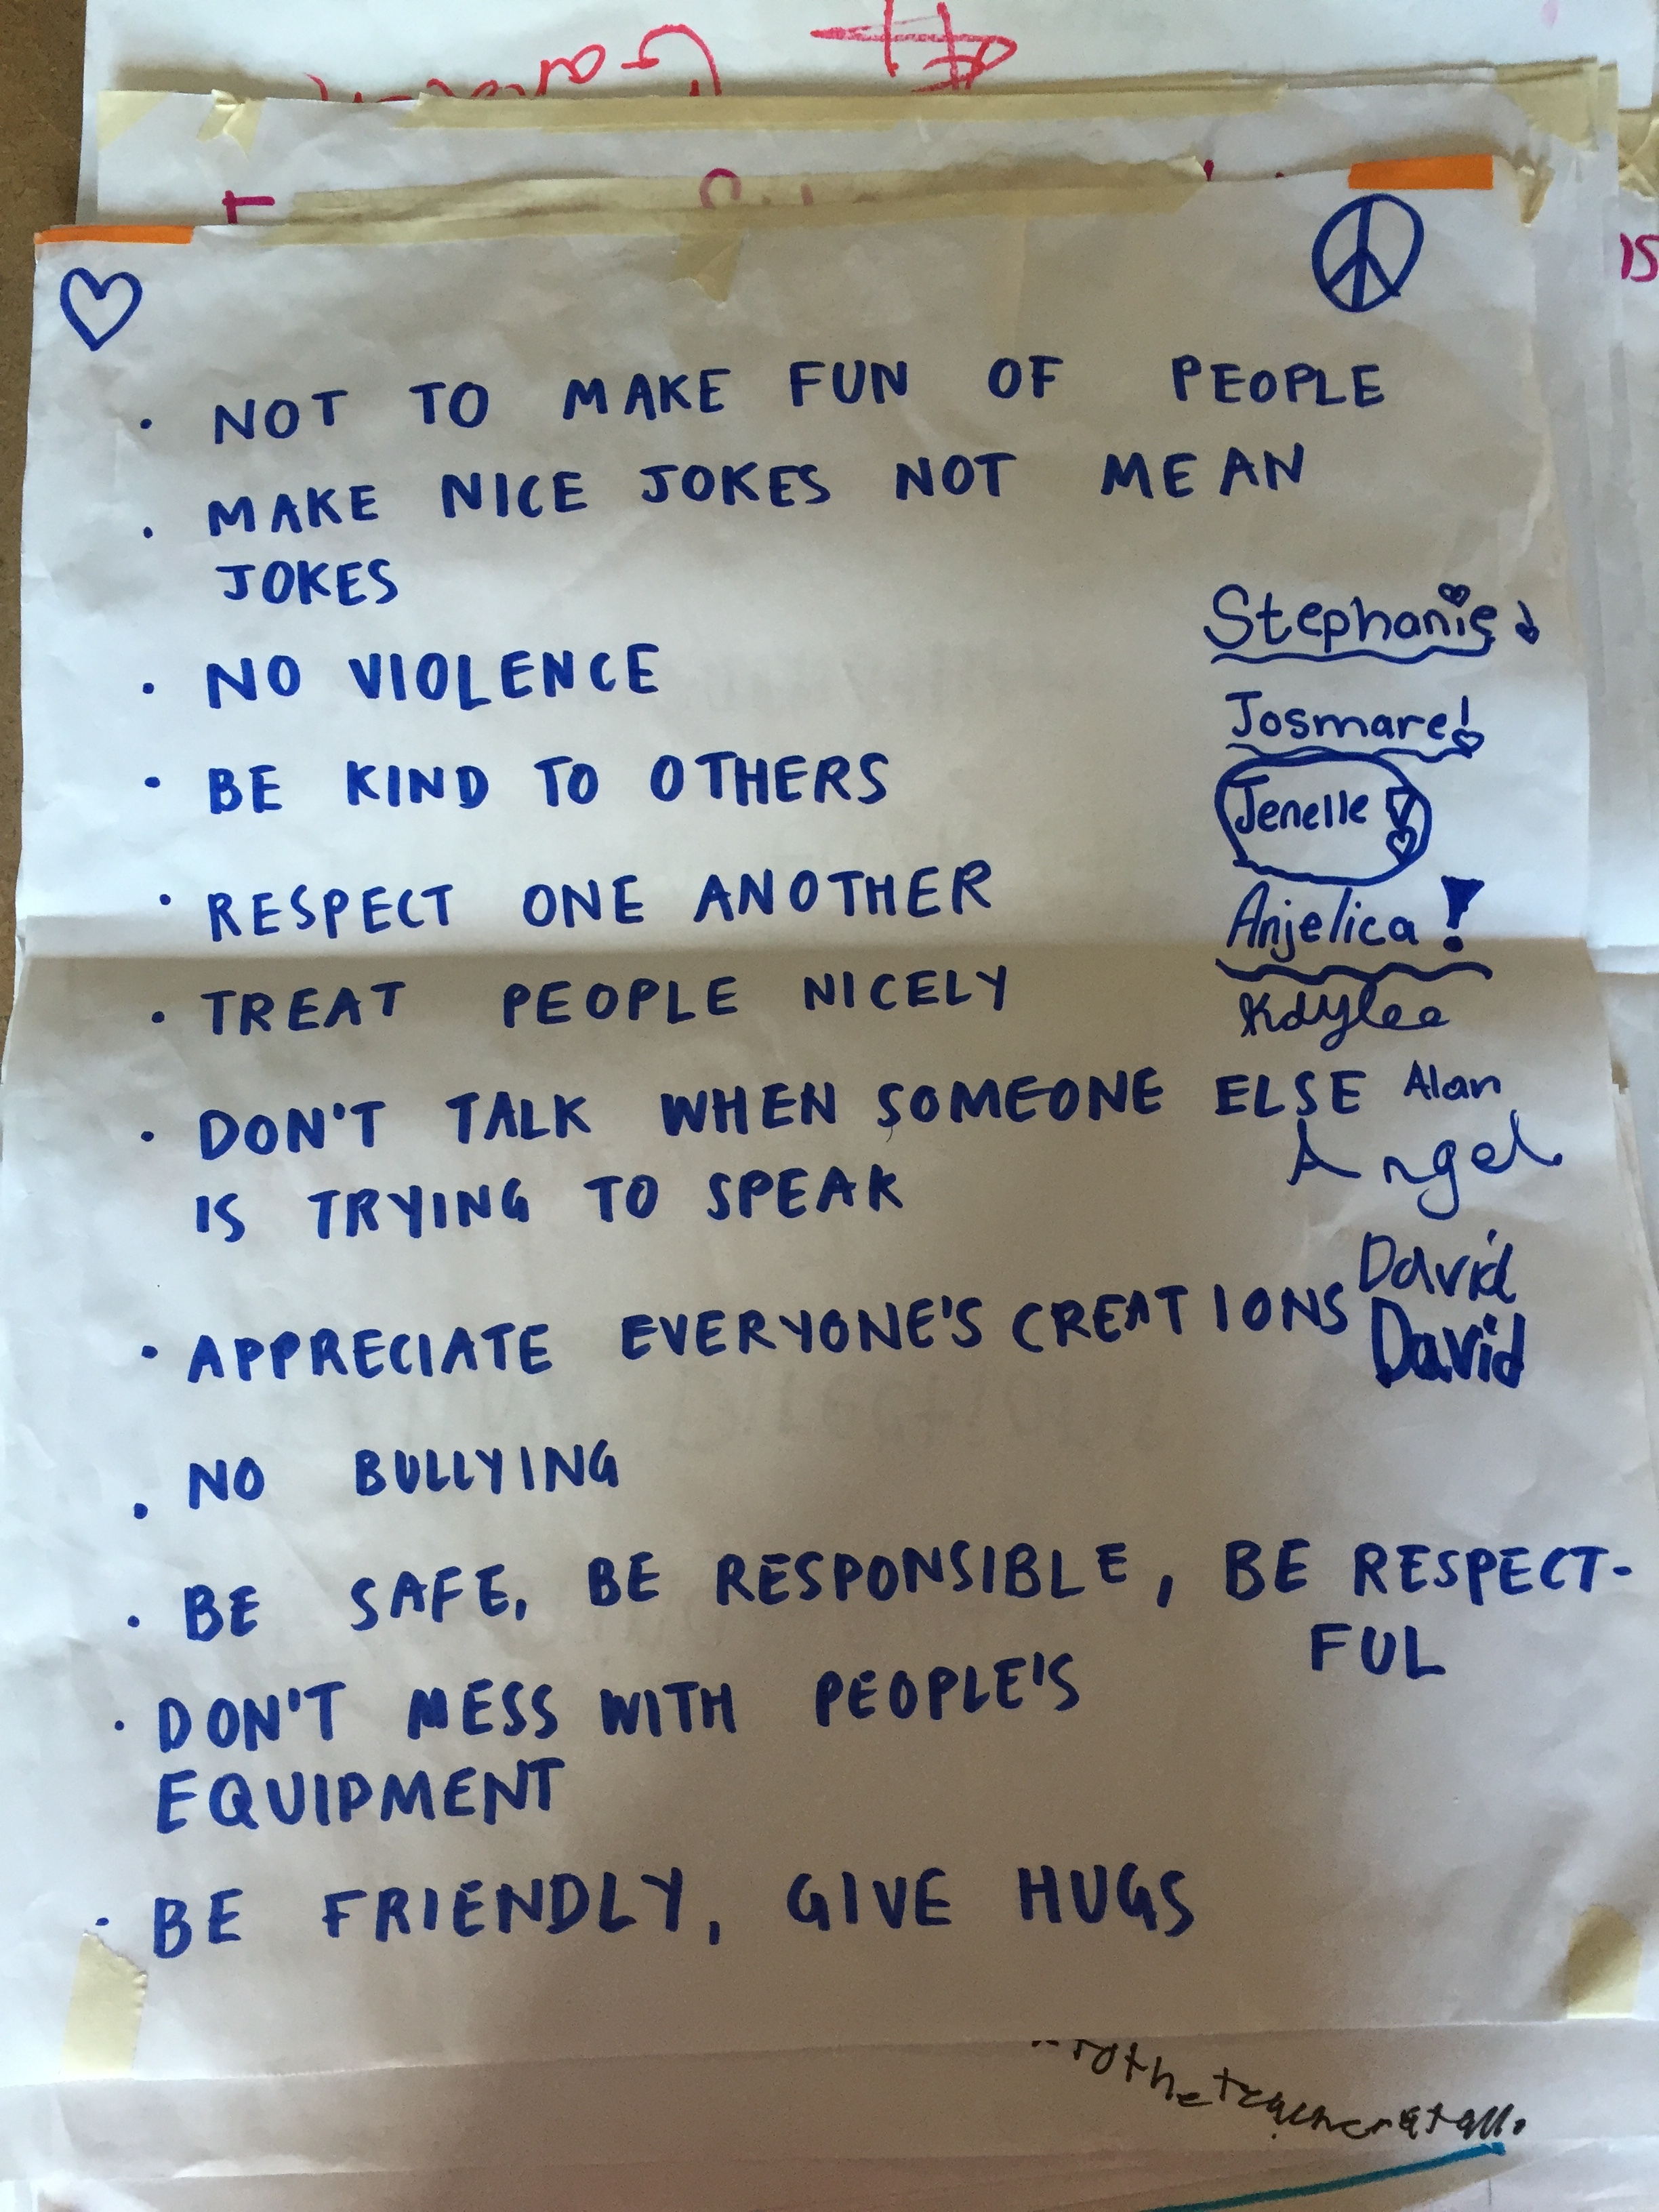 · NOT TO MAKE FUN OF PEOPLE
· MAKE NICE JOKES NOT MEAN
JOKES
· NO VIOLENCE
· BE KIND TO OTHERS
· RESPECT ONE ANOTHER
· TREAT PEOPLE NICELY
· DON'T TALK WHEN SOMEONE ELSE
IS TRYING TO SPEAK
· APPRECIATE EVERYONE'S CREATIONS
· NO BULLYING
· BE SAFE, BE RESPONSIBLE, BE RESPECT-
FUL
· DON'T MESS WITH PEOPLE'S
EQUIPMENT
· BE FRIENDLY, GIVE HUGS
Stephanie!
Josmare!
Jenelle!
Anjelica!
Kaylee
Alan
Angel
David
David
the teacher at all.